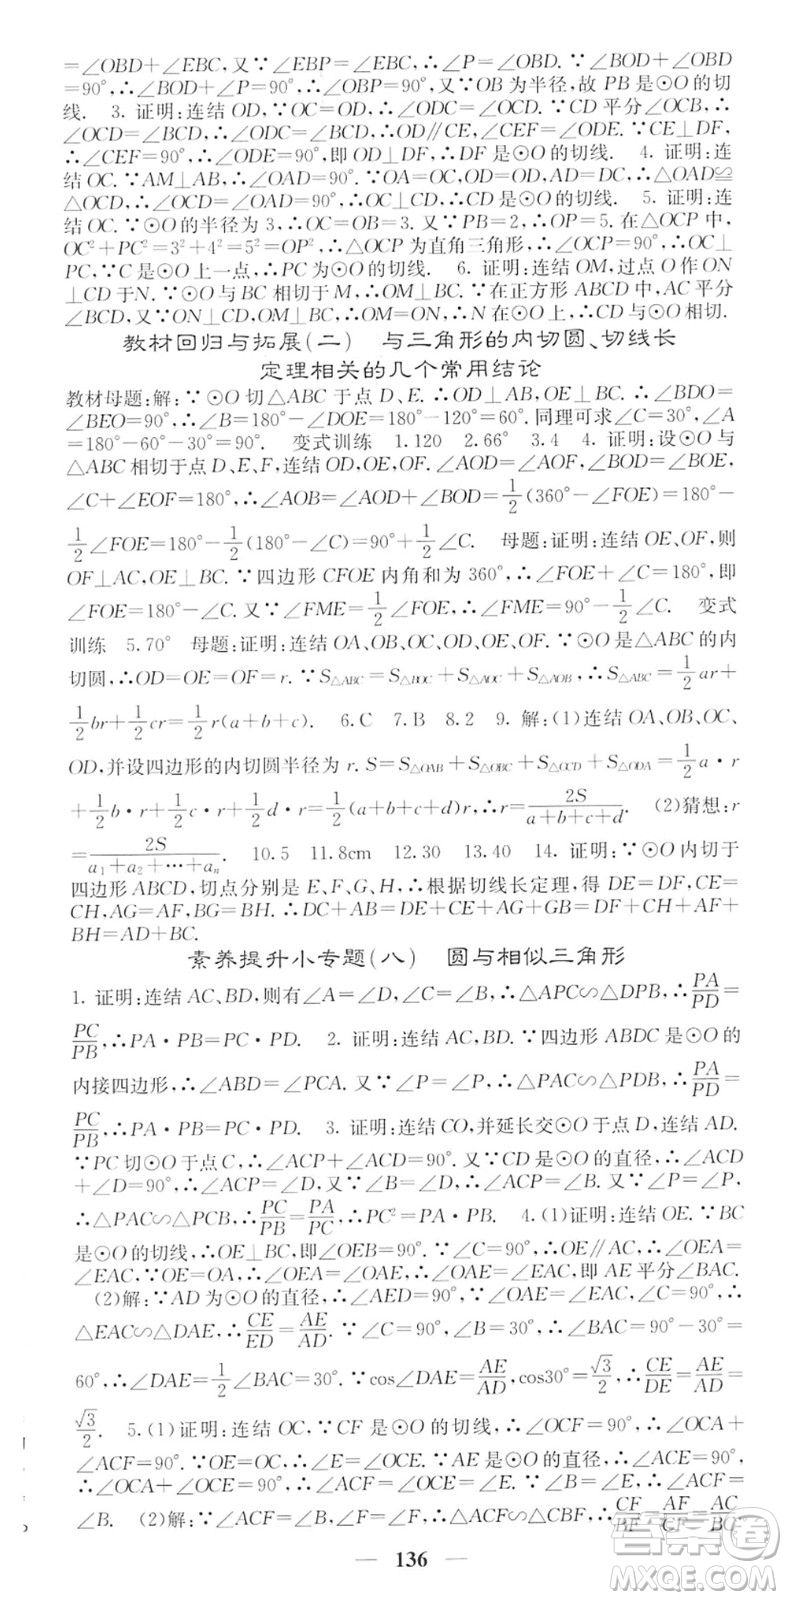 =∠OBD+∠EBC,又∵∠EBP=∠EBC,∴∠P=∠OBD.∵∠BOD+∠OBD
=90°,∴∠BOD+∠P=90°,∴∠OBP=90°.又∵OB为半径,故PB是⊙O的切
线. 3. 证明:连结OD,∵OC=OD,∴∠ODC=∠OCD.∵CD平分∠OCB,∴
∠OCD=∠BCD,∴∠ODC=∠BCD,∴OD∥CE,∠CEF=∠ODE.∵CE⊥DF,
∴∠CEF=90°,∴∠ODE=90°,即OD⊥DF,∴DF是⊙O的切线. 4. 证明:连
结OC.∵AM⊥AB,∴∠OAD=90°.∵OA=OC,OD=OD,AD=DC,∴△OAD≌
△OCD,∴∠OCD=∠OAD=90°,∴OC⊥CD,∴CD是⊙O的切线. 5. 证明:连结
OC.∵⊙O的半径为3,∴OC=OB=3.又∵PB=2,∴OP=5.在△OCP中,
OC²+PC²=3²+4²=5²=OP²,∴△OCP为直角三角形,∠OCP=90°,∴OC⊥
PC,∵C是⊙O上一点,∴PC为⊙O的切线. 6. 证明:连结OM,过点O作ON
⊥CD于N.∵⊙O与BC相切于M,∴OM⊥BC.∵在正方形ABCD中,AC平分
∠BCD,∴OM=ON,∴CD与⊙O相切.
教材回归与拓展(二) 与三角形的内切圆、切线长
定理相关的几个常用结论
教材母题:解:∵⊙O切△ABC于点D、E.∴OD⊥AB,OE⊥BC.∴∠BDO=
∠BEO=90°,∴∠B=180°-∠DOE=180°-120°=60°.同理可求∠C=30°,∠A
=180°-60°-30°=90°. 变式训练 1.120 2.66° 3.4 4. 证明:设⊙O与
△ABC相切于点D、E、F,连结OD,OE,OF.∠AOD=∠AOF,∠BOD=∠BOE,
∠C+∠EOF=180°,∴∠AOB=∠AOD+∠BOD=1/2(360°-∠FOE)=180°-
1/2∠FOE=180°-1/2(180°-∠C)=90°+1/2∠C. 母题:证明:连结OE,OF,则
OF⊥AC,OE⊥BC.∵四边形CFOE内角和为360°,∴∠FOE+∠C=180°,即
∠FOE=180°-∠C.又∵∠FME=1/2∠FOE,∴∠FME=90°-1/2∠C. 变式
训练 5.70° 母题:证明:连结OA、OB、OC、OD、OE、OF.∵⊙O是△ABC的内
切圆,∴OD=OE=OF=r.∵S△ABC=S△BOC+S△AOC+S△AOB,∴S△ABC=1/2ar+
1/2br+1/2cr=1/2r(a+b+c). 6.C 7.B 8.2 9. 解:(1)连结OA、OB、OC、
OD,并设四边形的内切圆半径为r.S=S△OAB+S△OBC+S△OCD+S△ODA=1/2a·r
+1/2b·r+1/2c·r+1/2d·r=1/2(a+b+c+d)r,∴r=2S/(a+b+c+d). (2)猜想:r
=2S/(a₁+a₂+…+aₙ). 10.5 11.8cm 12.30 13.40 14. 证明:∵⊙O内切于
四边形ABCD,切点分别是E、F、G、H,∴根据切线长定理,得DE=DF,CE=
CH,AG=AF,BG=BH.∴DC+AB=DE+CE+AG+BG=DF+CH+AF+
BH=AD+BC.
素养提升小专题(八) 圆与相似三角形
1. 证明:连结AC、BD,则有∠A=∠D,∠C=∠B,∴△APC∽△DPB,∴PA/PD=
PC/PB,∴PA·PB=PC·PD. 2. 证明:连结AC,BD.∵四边形ABDC是⊙O的
内接四边形,∴∠ABD=∠PCA.又∵∠P=∠P,∴△PAC∽△PDB,∴PA/PD=
PC/PB,∴PA·PB=PC·PD. 3. 证明:连结CO,并延长交⊙O于点D,连结AD.
∵PC切⊙O于点C,∴∠ACP+∠ACD=90°.∵CD是⊙O的直径,∴∠ACD
+∠D=90°,∴∠ACP=∠D.又∵∠D=∠B,∴∠ACP=∠B.又∵∠P=∠P,
∴△PAC∽△PCB,∴PC/PB=PA/PC,∴PC²=PA·PB. 4.(1)证明:连结OE.∵BC
是⊙O的切线,∴OE⊥BC,即∠OEB=90°,∵∠C=90°,∴OE∥AC,∴∠OEA=
∠EAC,∵OE=OA,∴∠OEA=∠OAE,∴∠OAE=∠EAC,即AE平分∠BAC.
(2)解:∵AD为⊙O的直径,∴∠AED=90°,∵∠OAE=∠EAC,∠C=90°,∴
△EAC∽△DAE,∴CE/ED=AE/AD.∵∠C=90°,∠B=30°,∴∠BAC=90°-30°=
60°,∴∠DAE=1/2∠BAC=30°.∵cos∠DAE=AE/AD,cos30°=√3/2,∴CE/DE=AE/AD=
√3/2. 5.(1)证明:连结OC,∵CF是⊙O的切线,∴∠OCF=90°,∴∠OCA+
∠ACF=90°.∵OE=OC,∴∠E=∠OCE.∵AE是⊙O的直径,∴∠ACE=90°,
∴∠OCA+∠OCE=90°,∴∠ACF=∠OCE=∠E.∵∠B=∠E,∴∠ACF=
∠B. (2)解:∵∠ACF=∠B,∠F=∠F,∴△ACF∽△CBF,∴CF/BF=AF/CF=AC/BC
136
答案圈
MXQE.COM